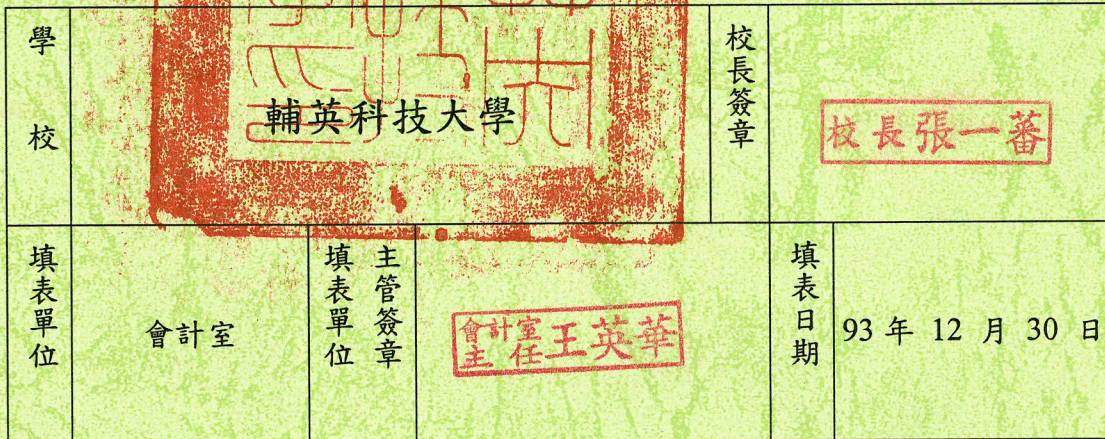 學校
輔英科技大學
校長簽章
校長張一蕃
填表單位
會計室
填表單位
主管簽章
會計室
主任王英華
填表日期
93 年 12 月 30 日